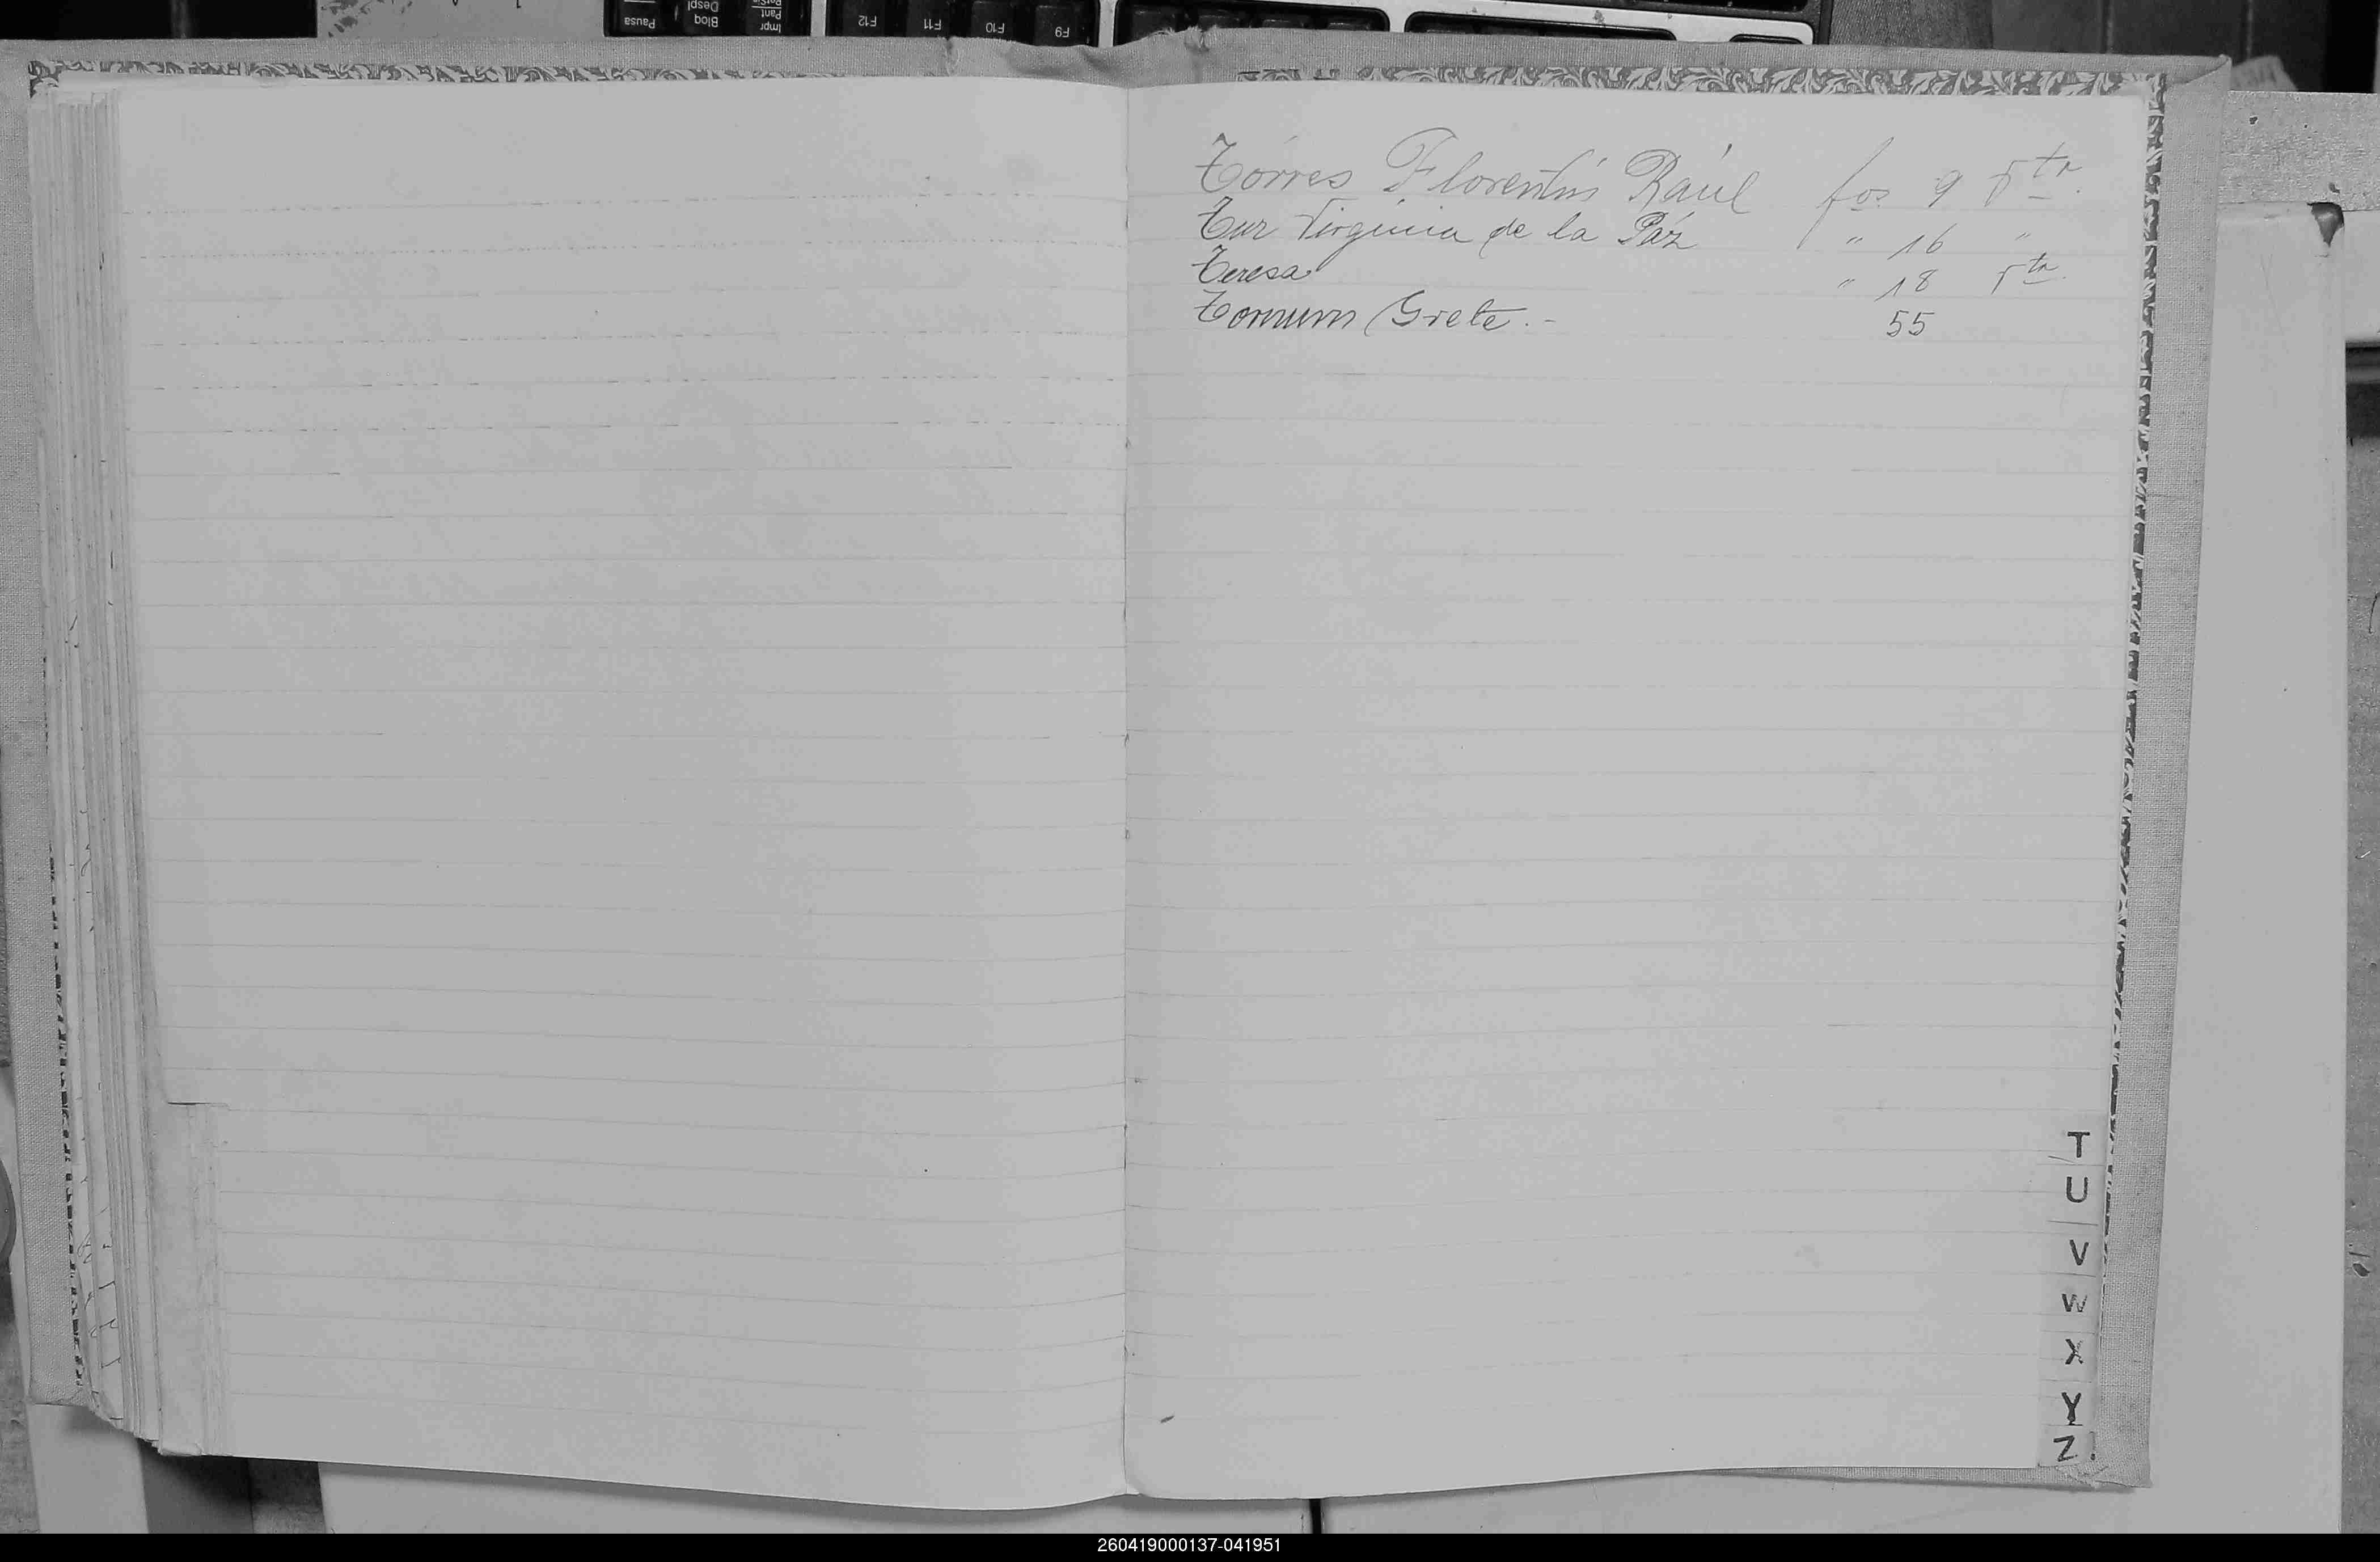 Pausa
Bloq
Despl
Impr
Pant
F12
F11
F10
F9
Tórres Florentín Raúl fos. 9
Tur Virginia de la Páz " 16 "
Teresa " 18
Grete.- 55
T
U
V
W
X
Y
Z
260419000137-041951